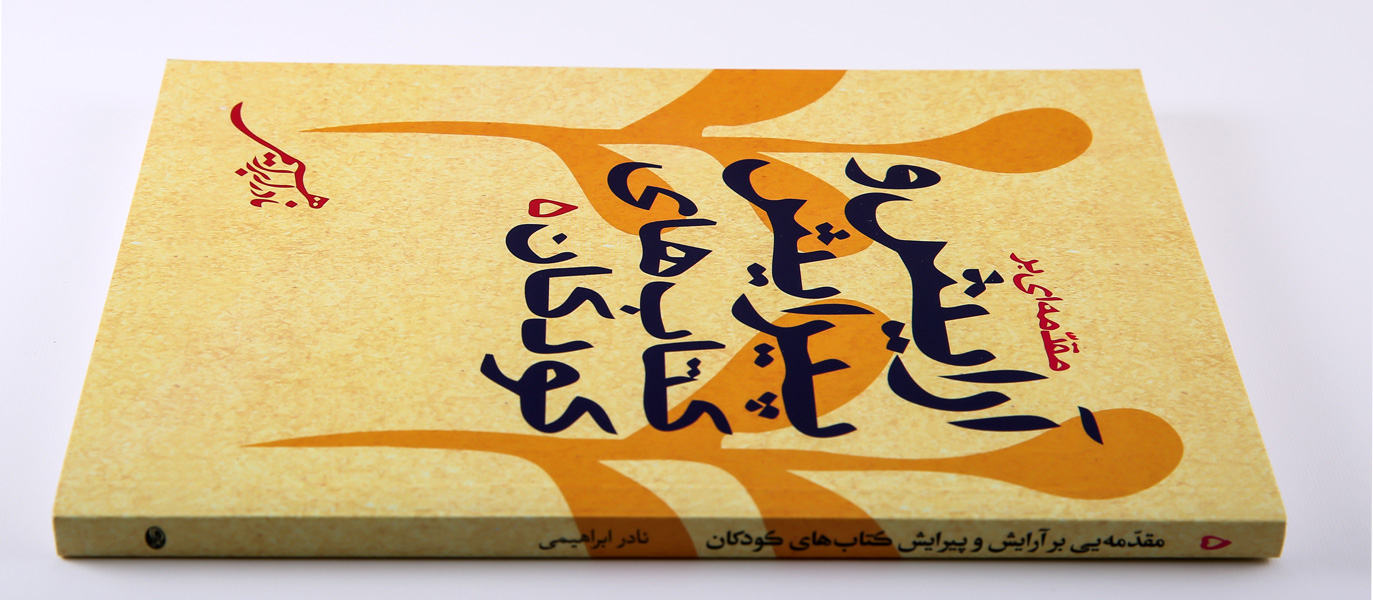 مقدّمه‌ای بر
آرایش و
پیرایش
کتاب‌های
کودکان
۵
نادر ابراهیمی
۵
مقدّمه‌یی بر آرایش و پیرایش کتاب‌های کودکان
نادر ابراهیمی